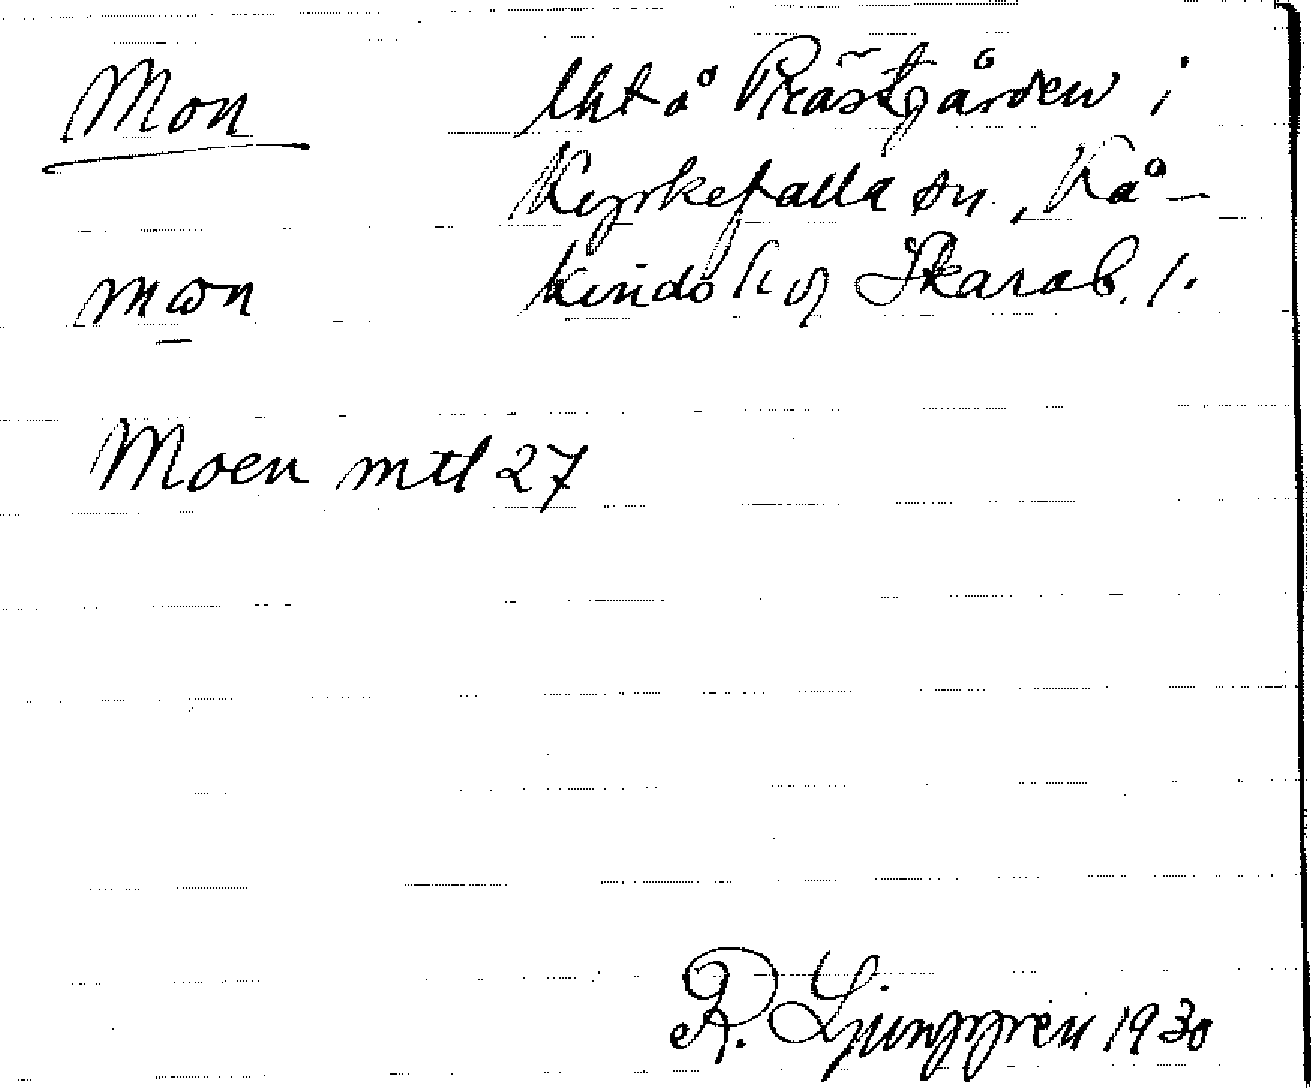 Mon
lht å Prästgården i
Kyrkefalla sn., Kå-
kinds hd Skarab. l.
mωn
Moen mtl 27
R. Ljunggren 1930